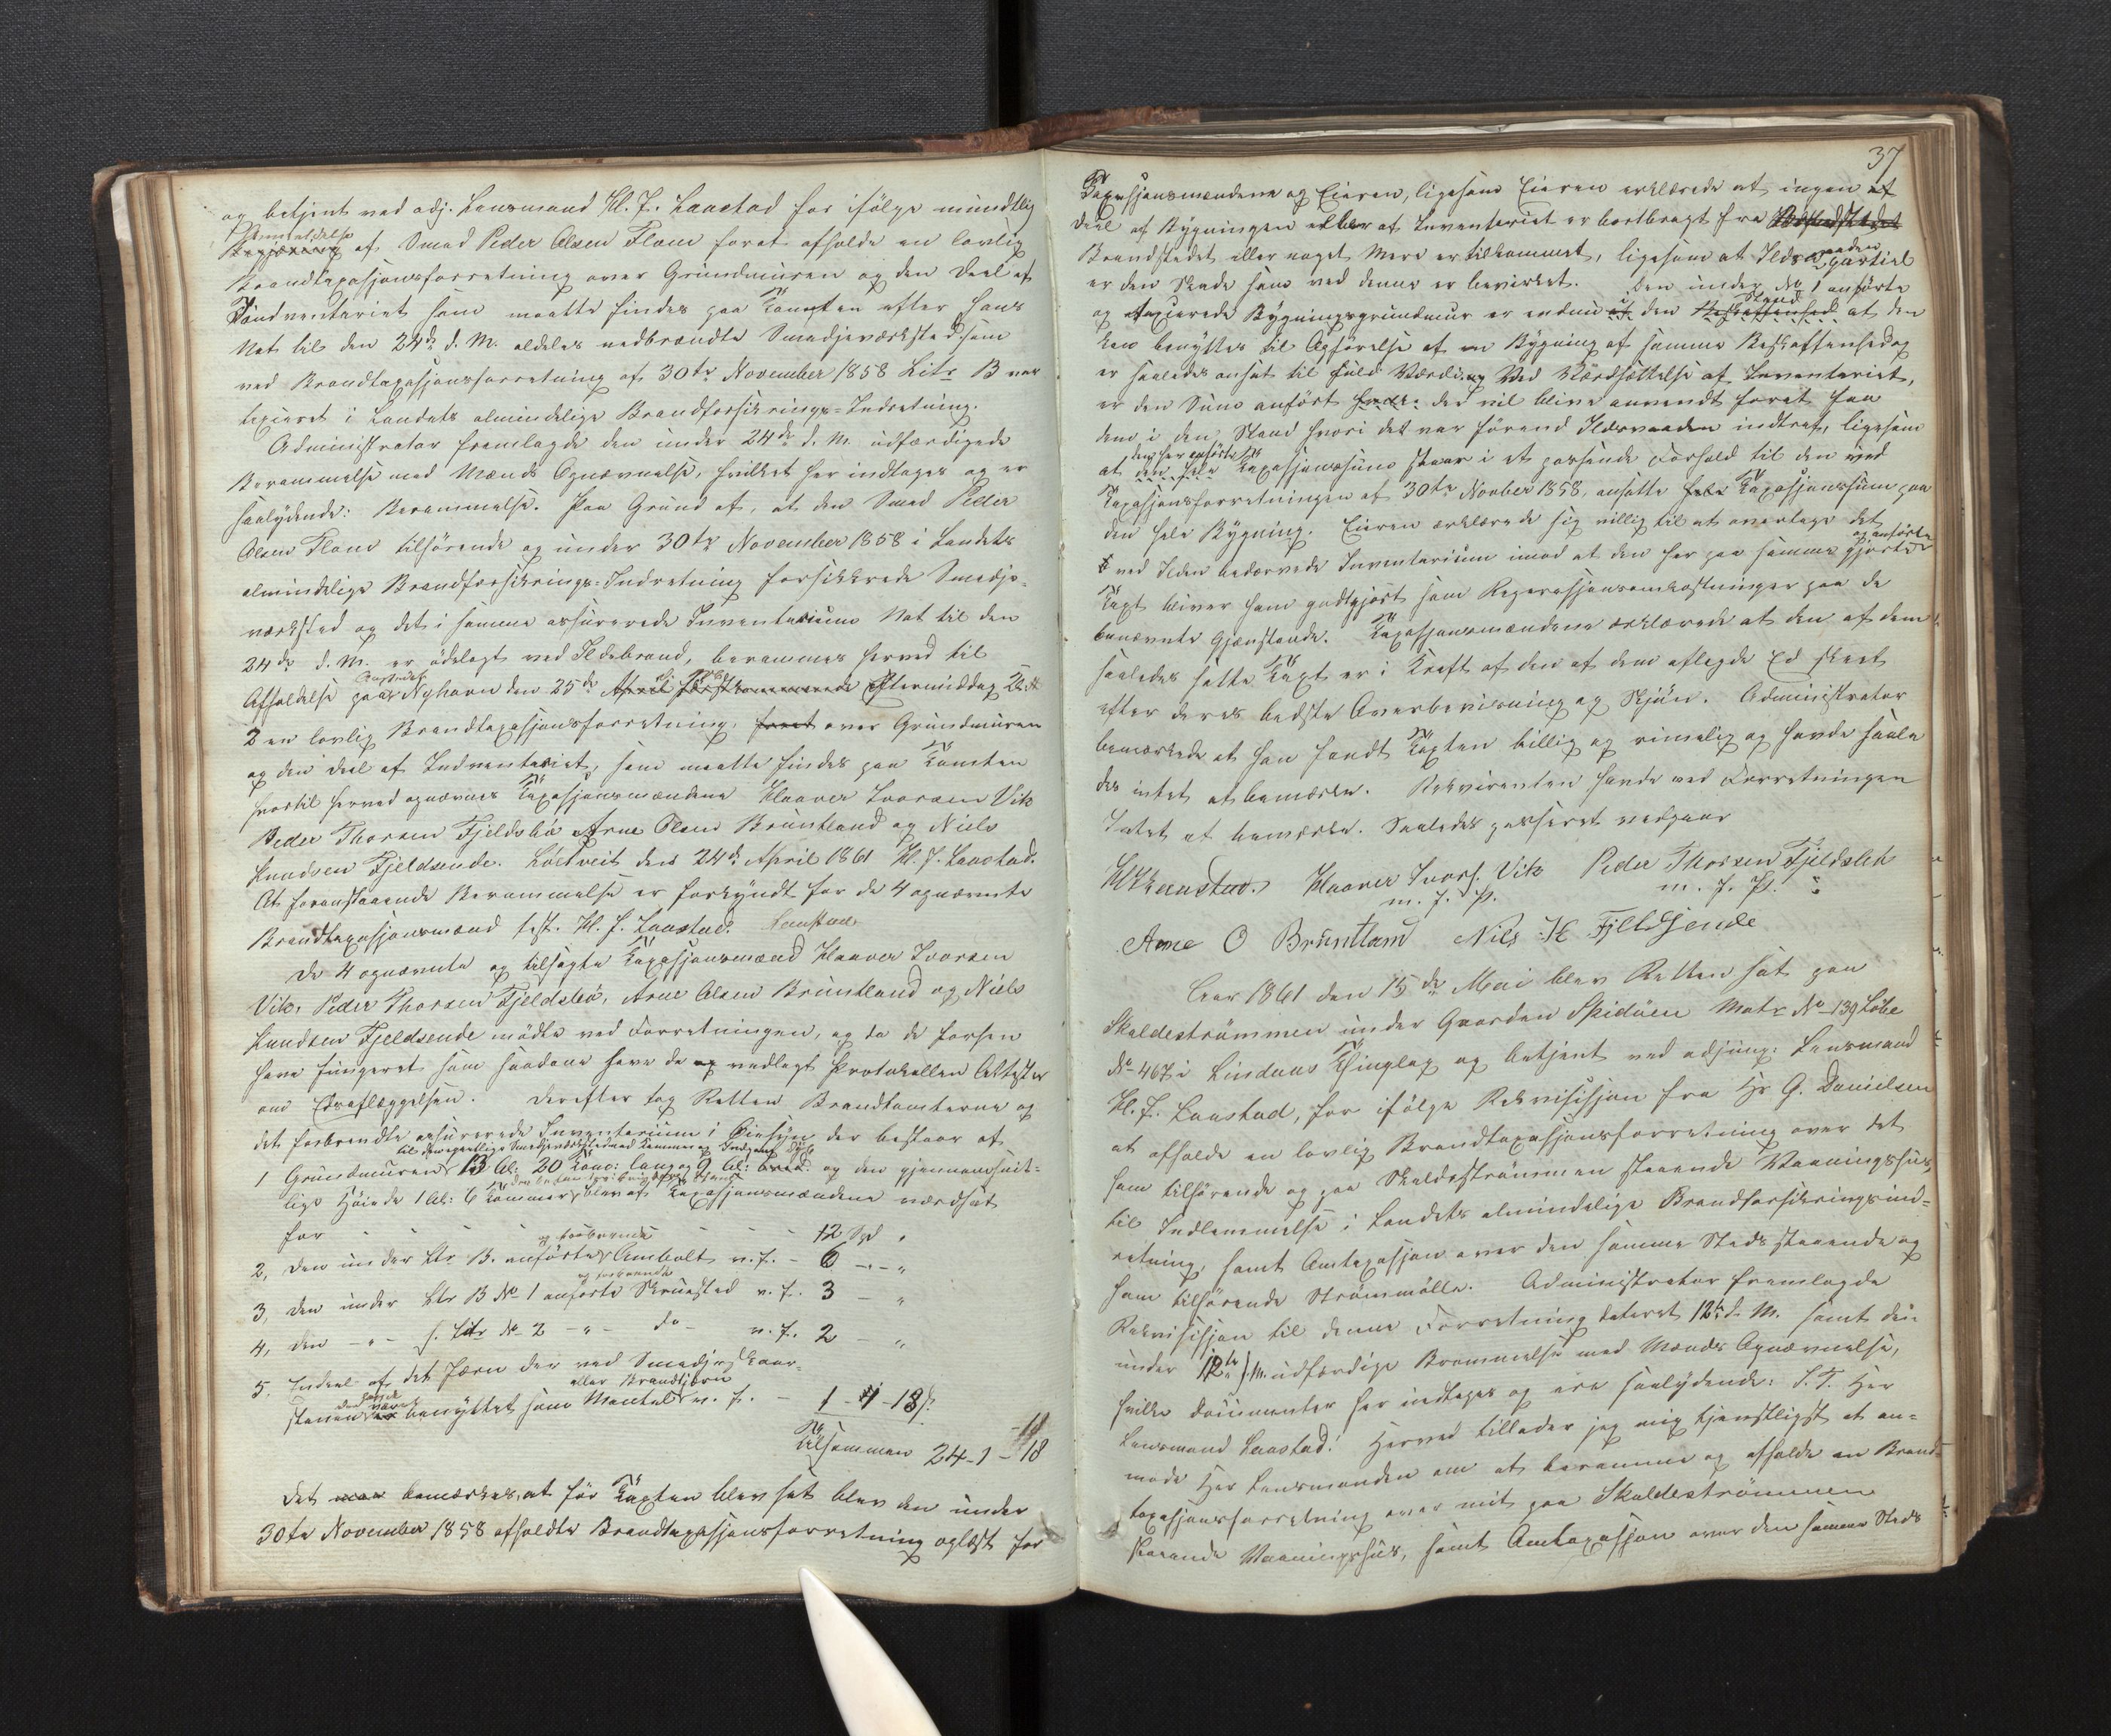 og betjent ved adj. Lensmand H. J. Laastad for ifölge mundtlig
Anmodelse
Begjæring af Smed Peder Olsen Flam foret afholde en lovlig
Brandtaxasjonsforretning over Grundmuren og den Deel af
Indventariet som maatte findes paa Tomten efter hans
Nat til den 24de d. M. aldeles nedbrændte Smedjeværksted som
ved Brandtaxasjonsforretning af 30te November 1858 Litr B var
taxeret i Landets almindelige Brandforsikrings-Indretning.
Administrator fremlagde den under 24de d. M. udfærdigede
Berammelse med Mænds Opnævnelse, hvilket her indtages og er
saalydende: Berammelse. Paa Grund af, at den Smed Peder
Olsen Flam tilhörende og under 30te November 1858 i Landets
almindelige Brandforsikrings-Indretning forsikkrede Smedje-
værksted og det i samme assurerede Inventarium Nat til den
24de d. M. er ödelagt ved Ildebrand, berammes herved til
Afholdelse paa Nyhavn den 25de April förstkommende Eftermiddag Kl.
2 en lovlig Brandtaxasjonsforretning, foret over Grundmuren
og den Deel af Indventariet, som maatte findes paa Tomten
hvortil herved opnævnes Taxasjonsmændene Haaver Ivorsen Vik
Peder Thorsen Fjeldsbö Arne Olsen Bruntland og Niels
Knudsen Fjeldsende. Löstveit den 24de April 1861 H. J. Laastad.
At foranstaaende Berammelse er forkyndt for de 4 opnævnte
Brandtaxasjonsmænd test. H. J. Laastad. Laastad
De 4 opnævnte og tilsagte Taxasjonsmænd Haaver Ivorsen
Vik, Peder Thorsen Fjeldsbö, Arne Olsen Bruntland og Niels
Knudsen Fjeldsende mödte ved Forretningen, og da de forhen
have fungeret som saadane have de og vedlagt Protokollen Attester
om Edsaflæggelsen. Derefter tog Retten Brandtomterne og
det forbrændte assurerede Inventarium i Öiesyn der bestaar af
til den egentlige Smedjeværksted med Kammer og Indgang
1 Grundmuren 13 Al: 20 Tom: lang og 9 Al: bred og den gjennemsnit-
lige Höide 1 Al: 6 Tommer blev af Taxasjonsmændene værdsat
for - - - - 12 Spd "
og forbrændte
2, Den under Ltr B. anförte Ambolt v. f. - 6 - "
3, Den under Ltr B No 1 anförte Skruested v. f. 3 - "
4, Den - " - f. Litr No 2 - " - do - v. f. 2 - "
5. Endeel af det Jærn der ved Smedje
eller Brandtjærn
benyttet som Mantel v. f. - 1 - 1 - 18 ß
Tilsammen 24 - 1 - 18
Det maa bemærkes, at för Taxten blev sat blev den under
30te November 1858 afholdte Brandtaxasjonsforretning oplæst for
37
Taxasjonsmændene og Eieren, ligesom Eieren erklærede at ingen af
Deel af Bygningen eller af Inventariet er bortbragt fra
Brandstedet eller noget Mere er tilkommet, ligesom at Ildsvaaden partiel
er den Skade som ved denne er bevirket. Den under No 1 anförte
Stand
og taxerede Bygningsgrundmur er endnu i den Beskaffenhed at den
kan benyttes til Opförelse af en Bygning af samme Beskaffenhed og
er saaledes ansat til fuld Værdi, og Ved Værdsættelse af Inventariet,
er den Sum anfört der vil blive anvendt foret faa
dem i den Stand hvori det var förend Ildsvaaden indtraf, ligesom
den her anförte
at den hele Taxasjonssum staar i et passende Forhold til den ved
Taxasjonsforretningen af 30te Novber 1858, ansatte hele Taxasjonssum paa
den hele Bygning. Eieren erklærede sig villig til at overtage det
og anförte
ved Ilden bedærvede Inventarium imod at den her paa samme gjorte
Taxt bliver ham godtgjort som Reparasjonsomkostninger paa de
benævnte Gjenstande. Taxasjonsmændene erklærede at den af dem
saaledes satte Taxt er i Kraft af den af dem aflagde Ed skeet
efter deres bedste Overbevisning og Skjön. Administrator
bemærkede at han fandt Taxten billig og rimelig og havde saale
des intet at bemærke. Rekvirenten havde ved Forretningen
Intet at bemærke. Saaledes passeret vedgaar
HJLaastad. Haaver Ivors. Vik Peder Thorsen Fjeldsbö
m. f. P. m. f. P.
Arne O Bruntland Nils K Fjeldsende
Aar 1861 den 15de Mai blev Retten sat paa
Skoldeströmmen under Gaarden Spidöen Matr No 139 Löbe
No 467 i Lindaas Thinglag og betjent ved adjung: Lensmand
H. J. Laastad, for ifölge Rekvisisjon fra Hr G. Danielsen
at afholde en lovlig Brandtaxasjonsforretning over det
ham tilhörende og paa Skoldeströmmen staaende Vaaningshus,
til Indlemmelse i Landets almindelige Brandforsikringsind-
retning, samt Omtaxasjon over den samme Steds staaende og
ham tilhörende Strömmölle. Administrator fremlagde
Rekvisisjon til denne Forretning dateret 12te d. M. samt den
under 12te d. M. udfærdige Berammelse med Mænds Opnævnelse,
hvilke Documenter her indtages og ere saalydende: S. T. Her
Lensmand Laastad! Herved tillader jeg mig tjenstligst at an-
mode Her Lensmanden om at beramme og afholde en Brand-
taxasjonsforretning over mit paa Skoldeströmmen
staaende Vaaningshus, samt Omtaxasjon over den samme Steds